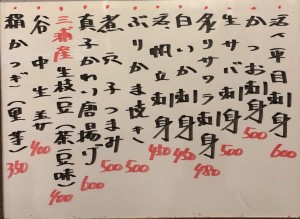 平目刺身 600
かつお刺身 500
生サバ刺身 500
炙りサワラ刺身 480
帆立刺身
ぶりかま焼き 500
煮穴子つまみ 500
真子かれい唐揚げ 600
三浦産生枝豆(茶豆味) 400
谷中生姜 400
絹かつぎ(里芋) 350